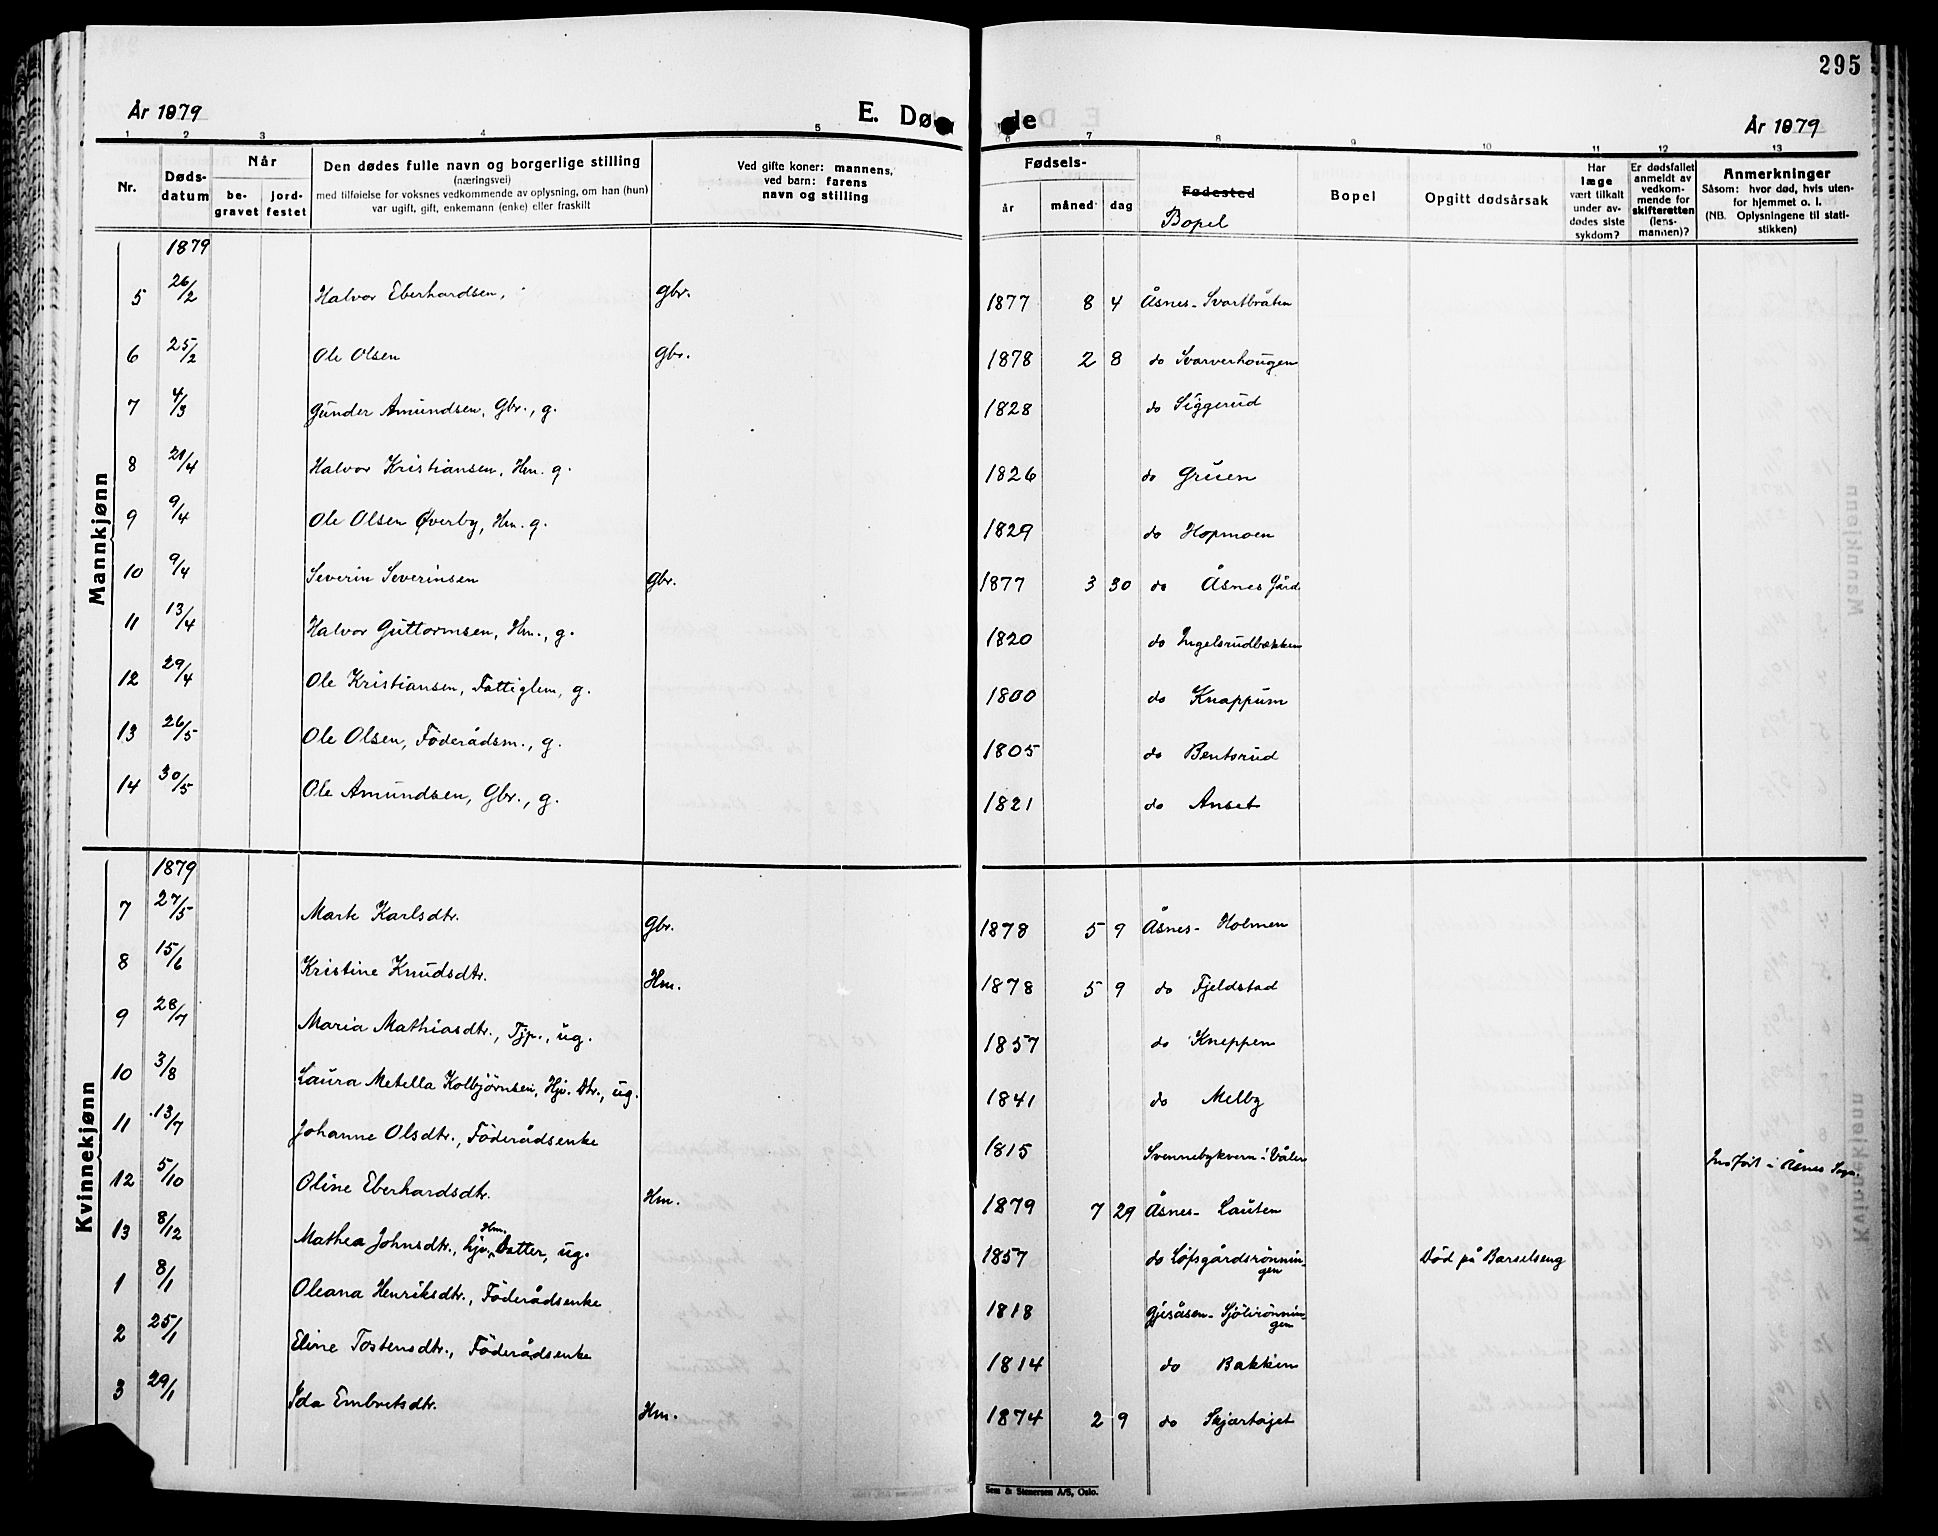 295
År 1879
E. Dø de
År 1879
1 2 3 4 5 6 7 8 9 10 11 12 13
Nr.
Døds-
datum
Når
be-
gravet
jord-
festet
Den dødes fulle navn og borgerlige stilling
(næringsvei)
med tilføielse for voksnes vedkommende av oplysning, om han (hun)
var ugift, gift, enkemann (enke) eller fraskilt
Ved gifte koner: mannens,
ved barn: farens
navn og stilling
Fødsels-
år måned dag
Fødested
Bopel
Bopel
Opgitt dødsårsak
Har
læge
vært tilkalt
under av-
dødes siste
sykdom?
Er dødsfallet
anmeldt av
vedkom-
mende for
skifteretten
(lens-
mannen)?
Anmerkninger
Såsom: hvor død, hvis uten-
for hjemmet o. l.
(NB. Oplysningene til stati-
stikken)
Mannkjønn
1879
5 26/2 Halvor Eberhardsen, Gbr. 1877 8 4 Åsnes - Svartbråten
6 25/2 Ole Olsen Gbr. 1878 2 8 do Svarverhougen
7 4/3 Gunder Amundsen, Gbr., g. 1828 do Siggerud
8 21/4 Halvor Kristiansen, Hm. g. 1826 do Gruen
9 9/4 Ole Olsen Øverby, Hm. g. 1829 do Hopmoen
10 9/4 Severin Severinsen Gbr. 1877 3 30 do Åsnes Gård
11 13/4 Halvor Guttormsen, Hm., g. 1820 do Ingelsrudbækken
12 29/4 Ole Kristiansen, Fattiglem, g. 1800 do Knappum
13 26/5 Ole Olsen, Föderådsm., g. 1805 do Bentsrud
14 30/5 Ole Amundsen, Gbr., g. 1821 do Anset
Kvinnekjønn
1879
7 27/5 Marte Karlsdtr. Gbr. 1878 5 9 Åsnes - Holmen
8 15/6 Kristine Knudsdtr. Hm. 1878 5 9 do Fjeldstad
9 28/7 Maria Mathiasdtr., Tjp., ug. 1857 do Kneppen
10 3/8 Laura Metella Kolbjørnsen, Hjv. Dtr., ug. 1841 do Melby
11 13/7 Johanne Olsdtr., Föderådsenke 1815 Svennebykvern i Våler Innført i Åsnes Sogn.
12 5/10 Oline Eberhardsdtr. Hm. 1879 7 29 Åsnes - Lauten
13 8/12 Mathea Johnsdtr., hjv. Hm. Datter, ug. 1857 do Løfsgårdsrønnin-
gen Död på Barselseng
1 8/1 Oleana Henriksdtr., Föderådsenke 1818 Gjesåsen - Sjölirönnin-
gen
2 25/1 Eline Tostensdtr., Föderådsenke 1814 do Bakken
3 29/1 Ida Embretsdtr. Hm. 1874 2 9 do Skjærtöjet
Sem & Stenersen A/S, Oslo.